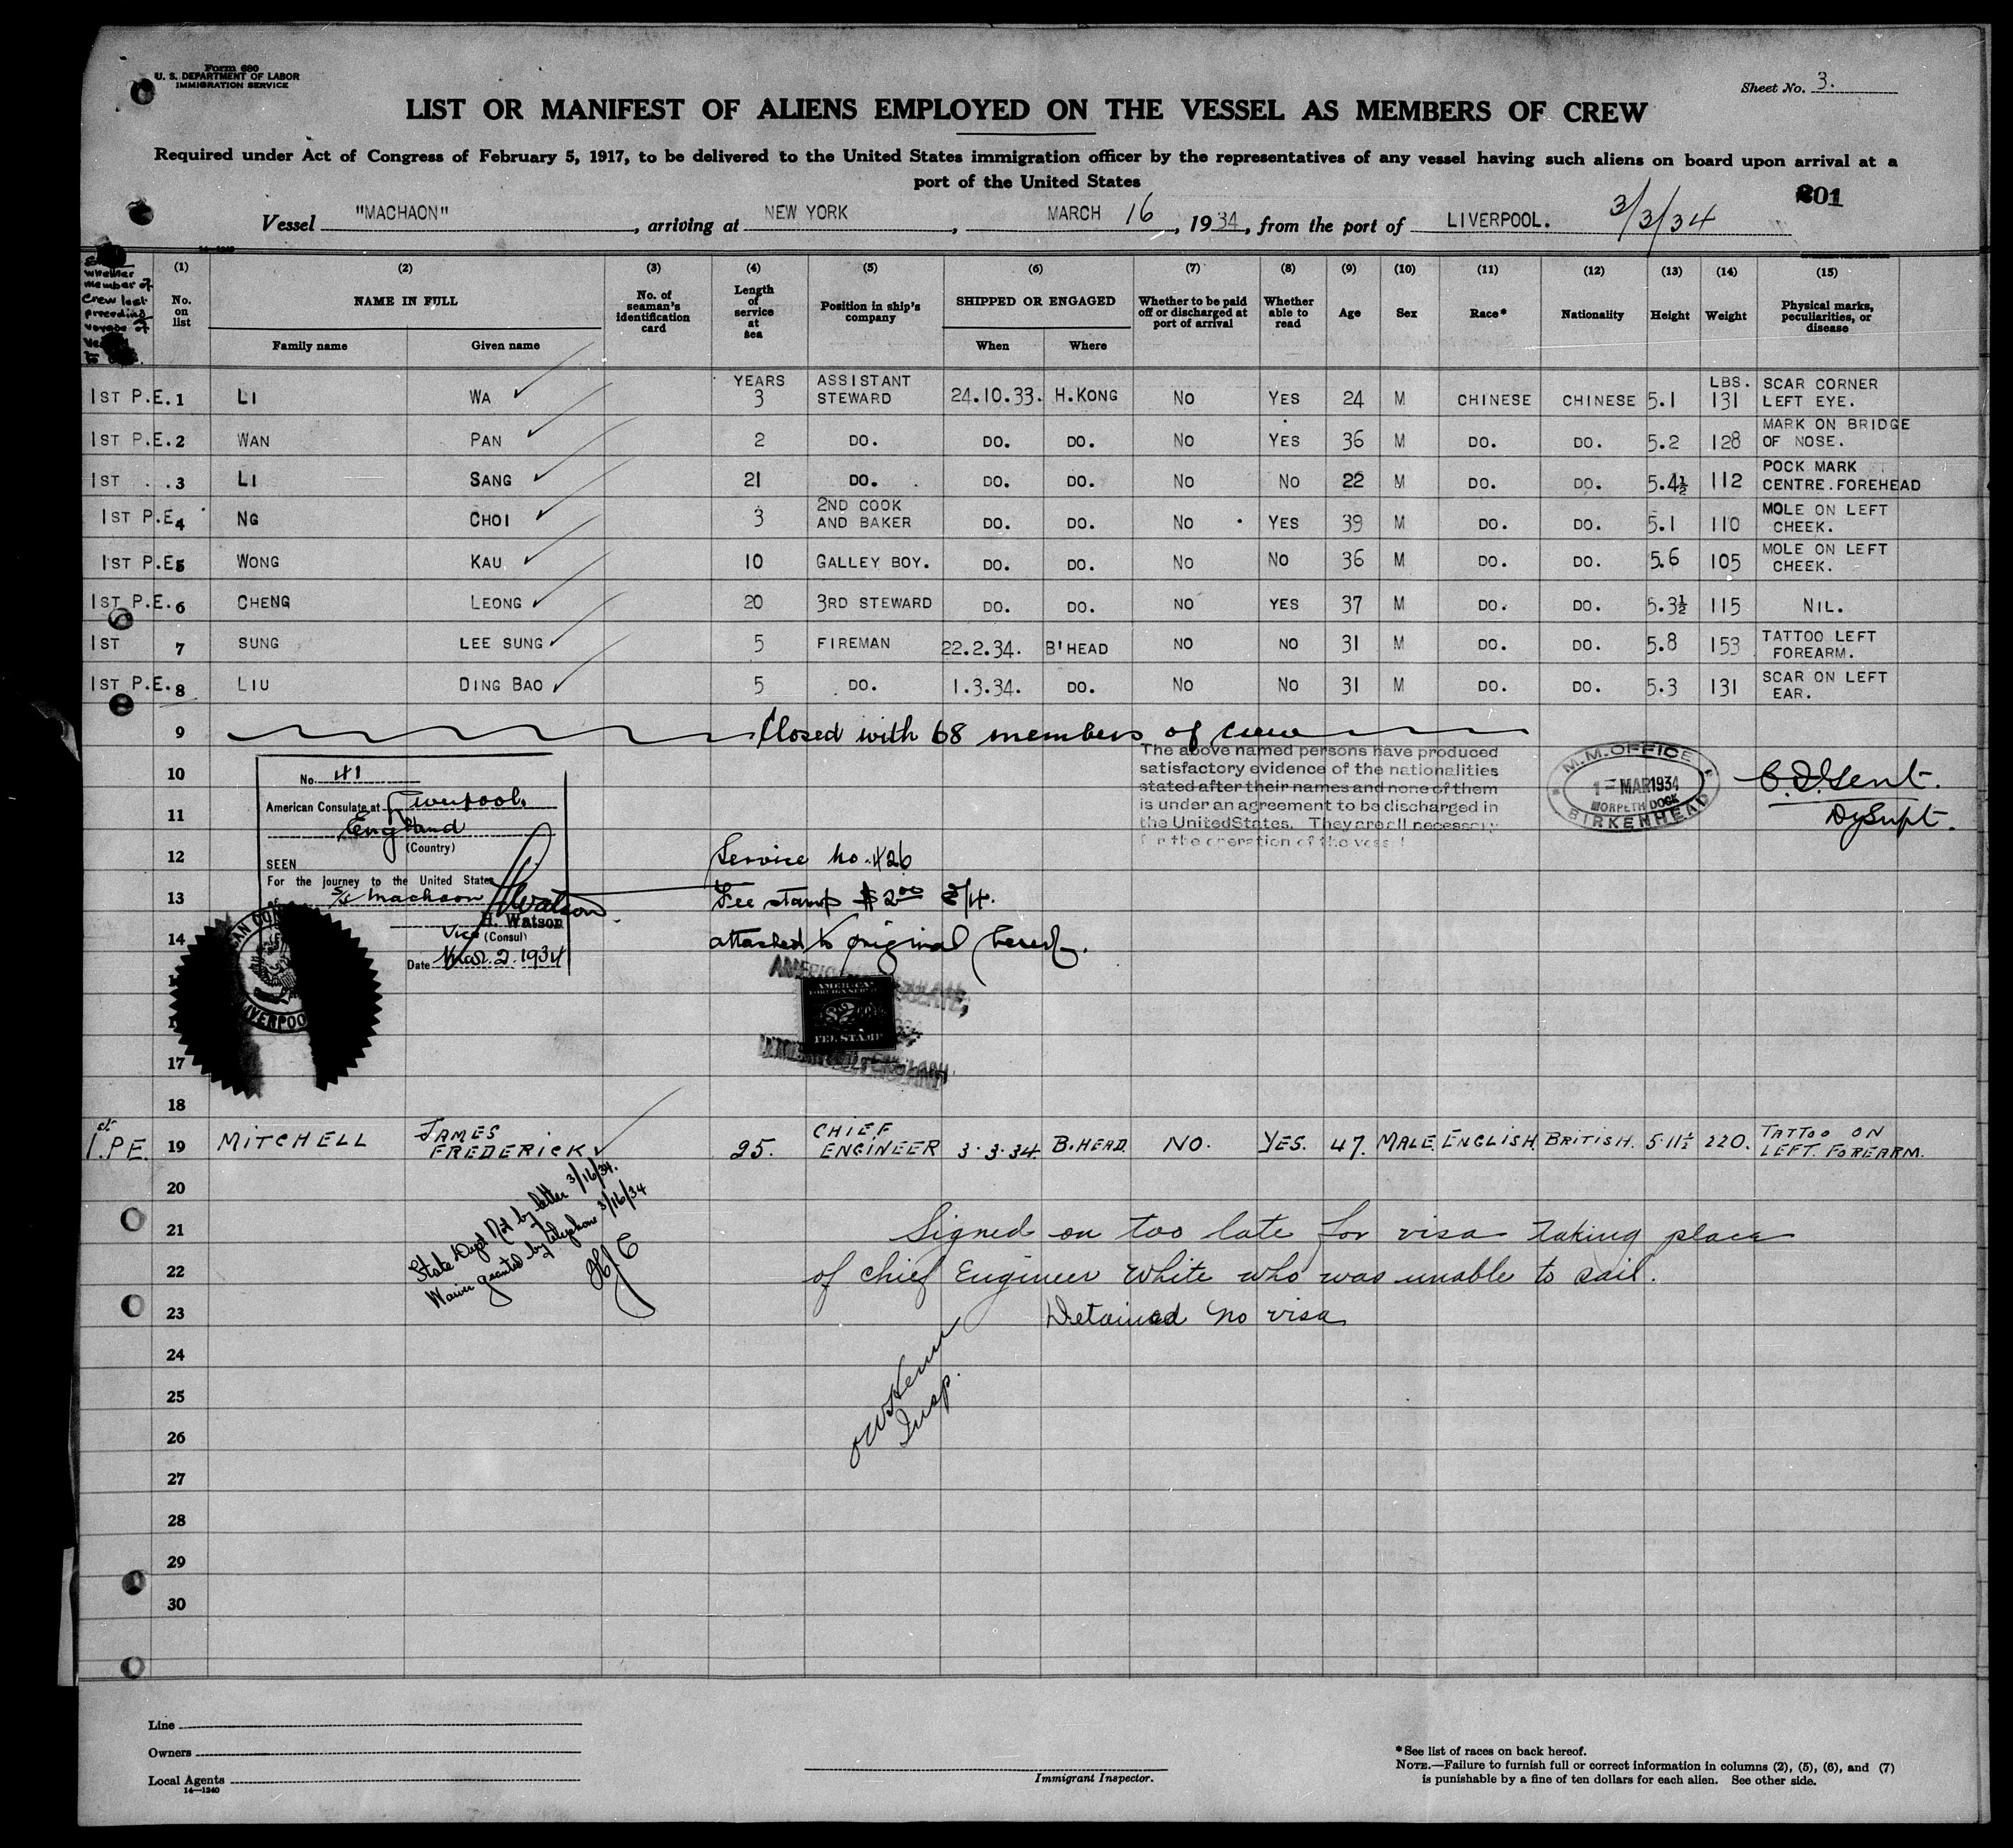 Form 680
U. S. DEPARTMENT OF LABOR
IMMIGRATION SERVICE
Sheet No. 3.
LIST OR MANIFEST OF ALIENS EMPLOYED ON THE VESSEL AS MEMBERS OF CREW
Required under Act of Congress of February 5, 1917, to be delivered to the United States immigration officer by the representatives of any vessel having such aliens on board upon arrival at a
port of the United States
201
Vessel "MACHAON", arriving at NEW YORK, MARCH 16, 1934, from the port of LIVERPOOL. 3/3/34
whether member of Crew last preceding voyage of
(1) (2) (3) (4) (5) (6) (7) (8) (9) (10) (11) (12) (13) (14) (15)
No. on list NAME IN FULL Family name Given name No. of seaman's identification card Length of service at sea Position in ship's company SHIPPED OR ENGAGED When Where Whether to be paid off or discharged at port of arrival Whether able to read Age Sex Race* Nationality Height Weight Physical marks, peculiarities, or disease
1ST P.E. 1 LI WA YEARS 3 ASSISTANT STEWARD 24.10.33. H.KONG NO YES 24 M CHINESE CHINESE 5.1 LBS. 131 SCAR CORNER LEFT EYE.
1ST P.E. 2 WAN PAN 2 DO. DO. DO. NO YES 36 M DO. DO. 5.2 128 MARK ON BRIDGE OF NOSE.
1ST . . 3 LI SANG 21 DO. DO. DO. NO NO 22 M DO. DO. 5.4½ 112 POCK MARK CENTRE.FOREHEAD
1ST P.E. 4 NG CHOI 3 2ND COOK AND BAKER DO. DO. NO YES 39 M DO. DO. 5.1 110 MOLE ON LEFT CHEEK.
1ST P.E. 5 WONG KAU 10 GALLEY BOY. DO. DO. NO NO 36 M DO. DO. 5.6 105 MOLE ON LEFT CHEEK.
1ST P.E. 6 CHENG LEONG 20 3RD STEWARD DO. DO. NO YES 37 M DO. DO. 5.3½ 115 NIL.
1ST 7 SUNG LEE SUNG 5 FIREMAN 22.2.34. B'HEAD NO NO 31 M DO. DO. 5.8 153 TATTOO LEFT FOREARM.
1ST P.E. 8 LIU DING BAO 5 DO. 1.3.34. DO. NO NO 31 M DO. DO. 5.3 131 SCAR ON LEFT EAR.
9 Closed with 68 members of crew
The above named persons have produced
satisfactory evidence of the nationalities
stated after their names and none of them
is under an agreement to be discharged in
the United States. They are all necessary
for the operation of the vessel
M.M. OFFICE
1 - MAR 1934
MORPETH DOCK
BIRKENHEAD
Dy Supt.
10
11
12
13
14
No. 41
American Consulate at Liverpool,
England
(Country)
SEEN
For the journey to the United States
S/S Machaon
H. Watson
H. Watson
Vice (Consul)
Date Mar. 2. 1934
LIVERPOOL
Service No. 426
Fee stamp $2.00
attached to original hereof.
AMERICAN
FOREIGN SERVICE
$2
FEE STAMP
17
18
1st P.E. 19 MITCHELL JAMES FREDERICK 25. CHIEF ENGINEER 3.3.34. B.HEAD. NO. YES. 47. MALE. ENGLISH. BRITISH. 5.11½ 220. TATTOO ON LEFT FOREARM.
State Dept Not by letter 3/16/34.
Waiver granted by telephone 3/16/34
20
21 Signed on too late for visa taking place
22 of chief Engineer White who was unable to sail.
23 Detained no visa
Insp.
24
25
26
27
28
29
30
Line
Owners
Local Agents
14—1240
Immigrant Inspector.
*See list of races on back hereof.
NOTE.—Failure to furnish full or correct information in columns (2), (5), (6), and (7)
is punishable by a fine of ten dollars for each alien. See other side.